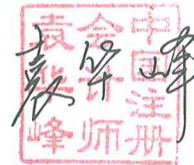 中国注册
会计师
袁华峰
袁华峰